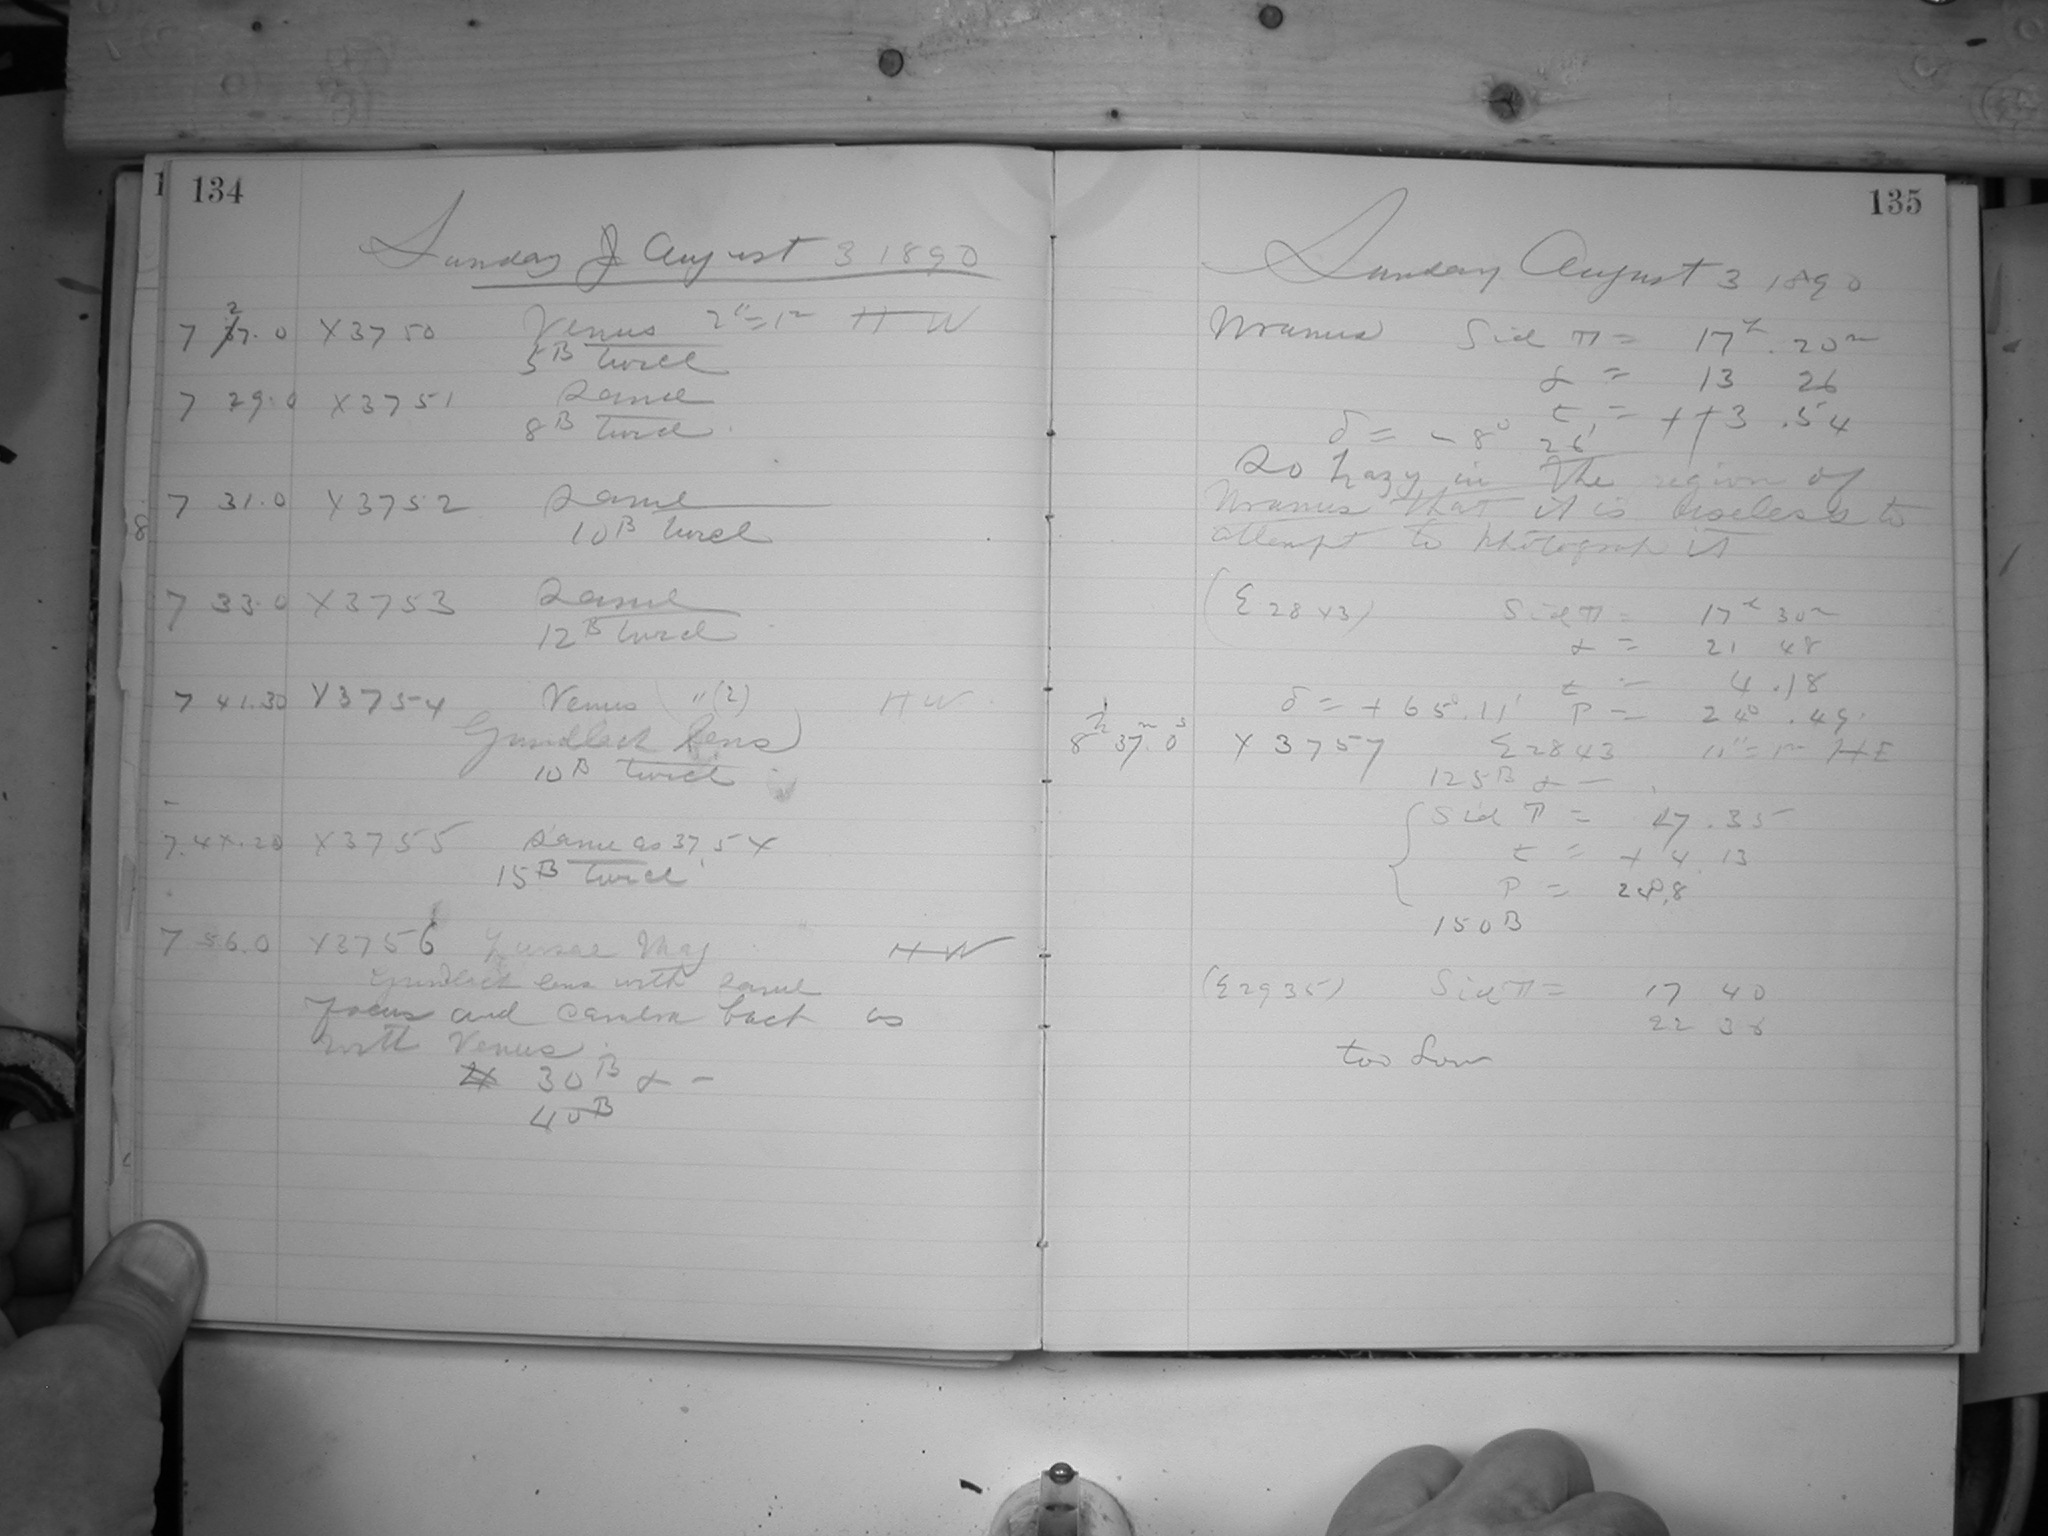 134
Sunday August 3 1890
7 27.0 X3750 Venus 2"=1m HW
5B twice
7 29.0 X3751 Same
8B twice
7 31.0 X3752 Same
10B twice
7 33.0 X3753 Same
12B twice
7 41.30 X3754 Venus "(2) HW
Gundlach Lens)
10B twice
7.4 .20 X3755 Same as 3754
15B twice
7 56.0 X3756 Ursae Maj HW
Gundlach lens with same
focus and camera back as
with Venus.
30B & -
40B
135
Sunday August 3 1890
Uranus Sid T = 17h.20m
α = 13 26
t = + 3.54
δ = -8° 26'
So hazy in the region of
Uranus that it is useless to
attempt to photograph it
(Σ2843) Sid T = 17h 30m
α = 21 48
t = 4.18
δ = +65°.11' P = 24°.49
8h 37m.0s X3757 Σ2843 11"=1m HE
125B & -
Sid T = 17.35
t = +4.13
P = 24°.8
150B
(Σ2935) Sid T = 17 40
22 36
too low
8